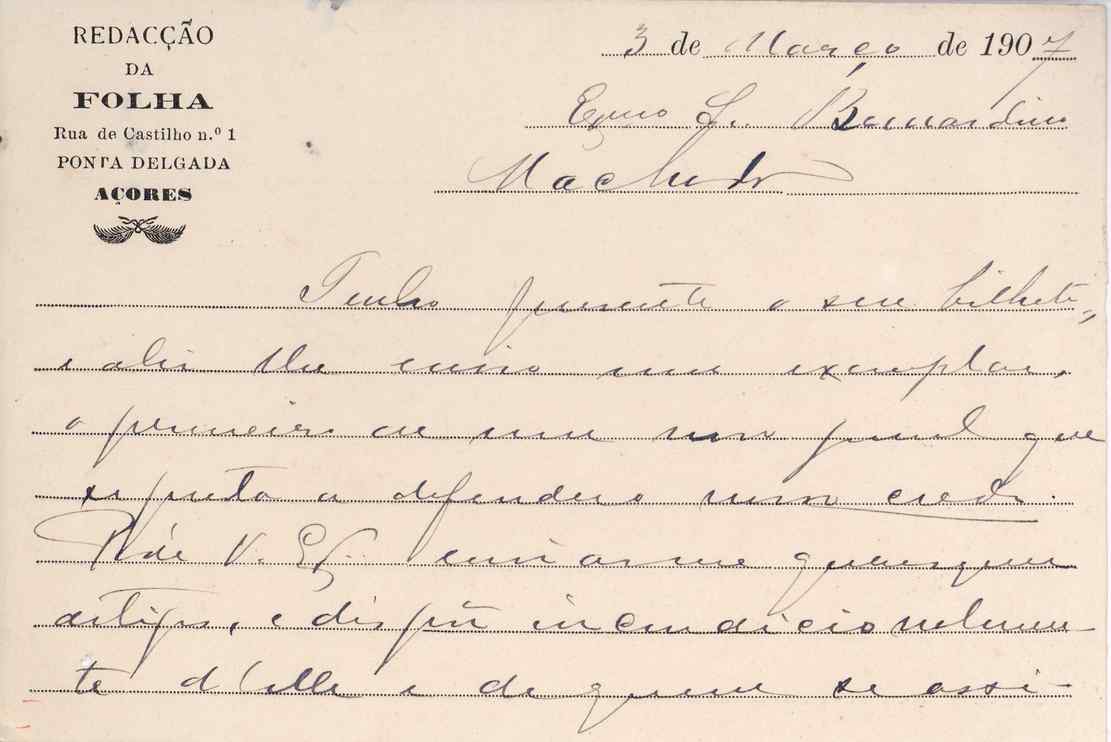 REDACÇÃO
DA
FOLHA
Rua de Castilho n.º 1
PONTA DELGADA
AÇORES
3 de Março de 1907
Exmo Sr. Bernardino
Machado
Tenho presente o seu bilhete,
e ahi lhe envio um exemplar,
o primeiro de um novo jornal que
se presta a defender o nosso credo.
Póde V. Exª enviar-me quaesquer
artigos, e dispôr incondicionalmen
te d'elle e de quem se assi-